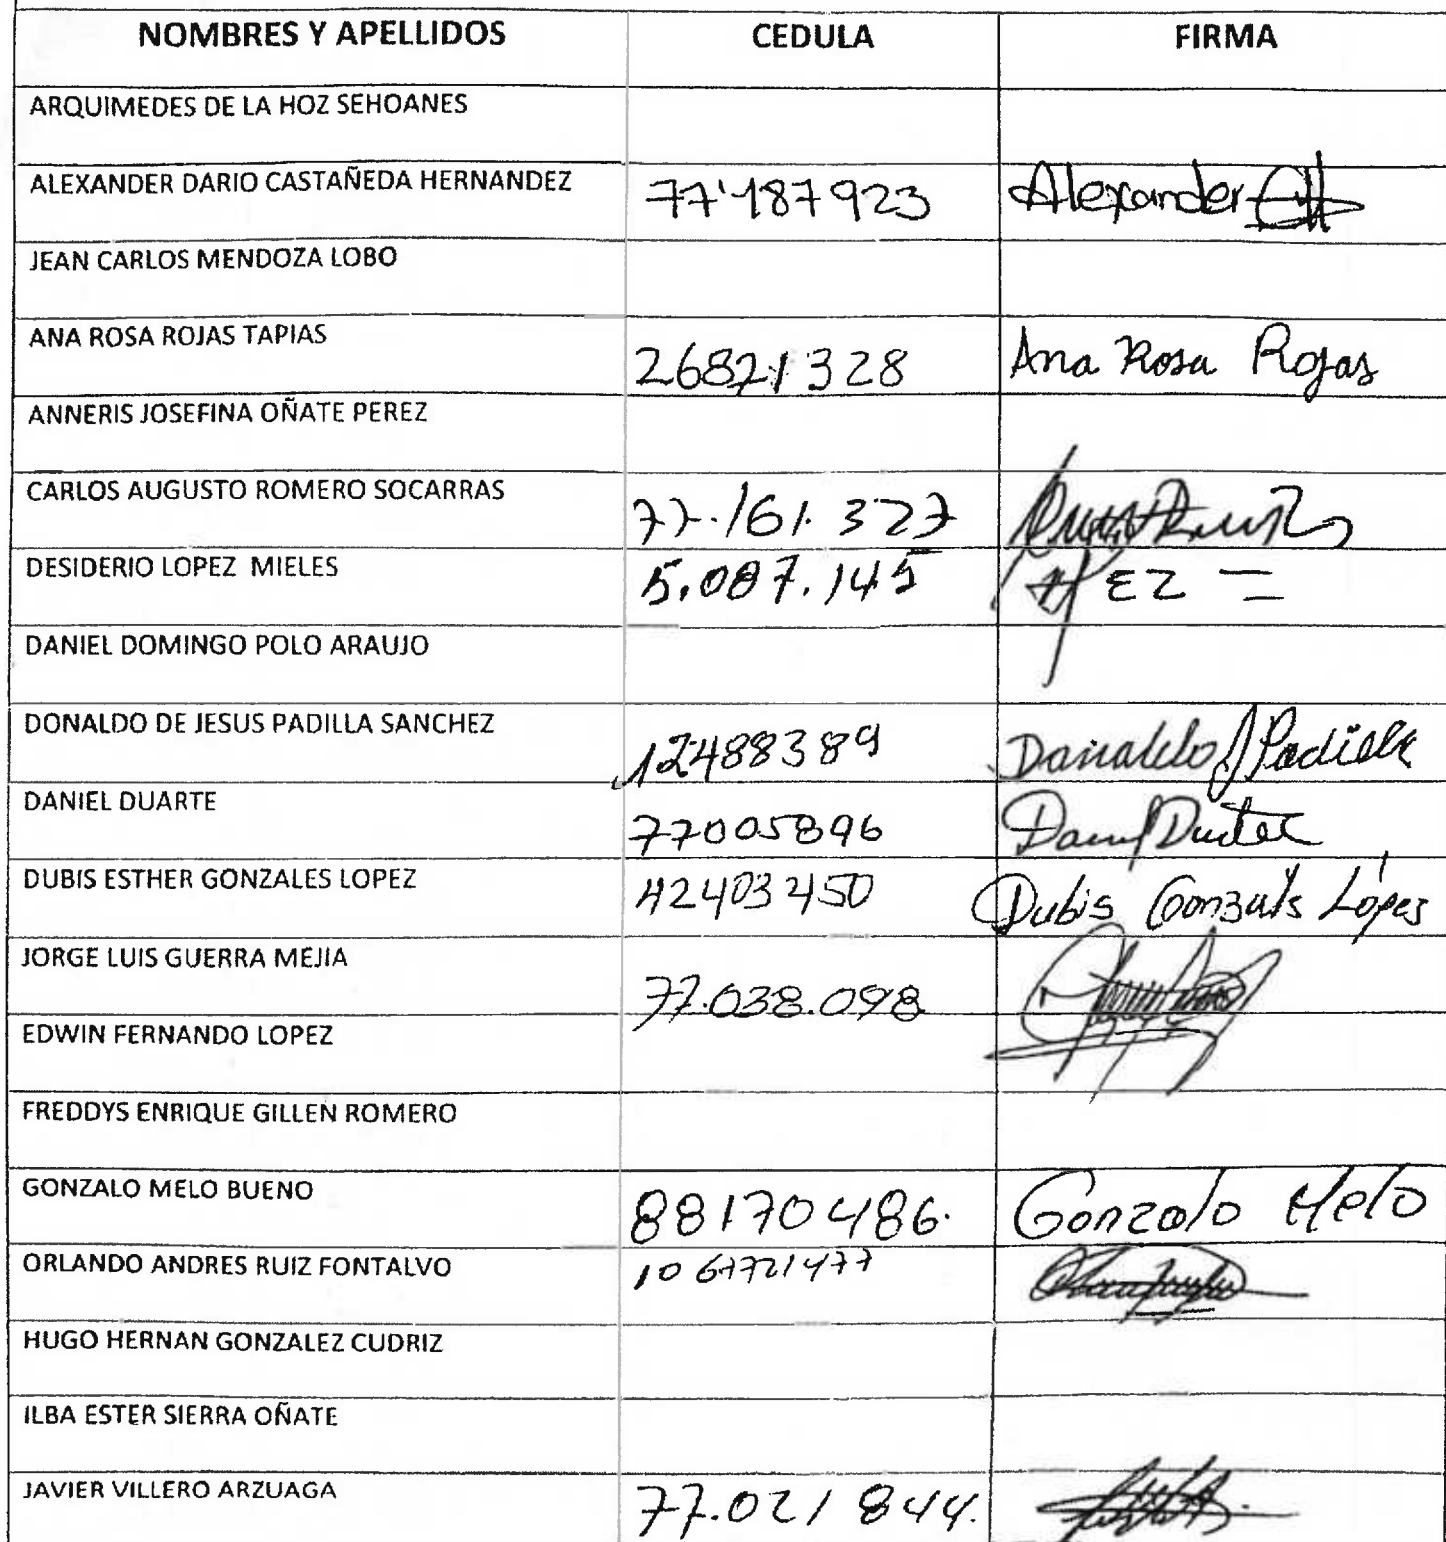 NOMBRES Y APELLIDOS CEDULA FIRMA
ARQUIMEDES DE LA HOZ SEHOANES
ALEXANDER DARIO CASTAÑEDA HERNANDEZ 77'187923 Alexander
JEAN CARLOS MENDOZA LOBO
ANA ROSA ROJAS TAPIAS 26821328 Ana Rosa Rojas
ANNERIS JOSEFINA OÑATE PEREZ
CARLOS AUGUSTO ROMERO SOCARRAS 77.161.327
DESIDERIO LOPEZ MIELES 5.087.145
DANIEL DOMINGO POLO ARAUJO
DONALDO DE JESUS PADILLA SANCHEZ 12488389 Donaldo J Padilla
DANIEL DUARTE 77005896 Daniel Duarte
DUBIS ESTHER GONZALES LOPEZ 42403450 Dubis Gonzales López
JORGE LUIS GUERRA MEJIA 77.038.098
EDWIN FERNANDO LOPEZ
FREDDYS ENRIQUE GILLEN ROMERO
GONZALO MELO BUENO 88170486. Gonzalo Melo
ORLANDO ANDRES RUIZ FONTALVO 1067721477
HUGO HERNAN GONZALEZ CUDRIZ
ILBA ESTER SIERRA OÑATE
JAVIER VILLERO ARZUAGA 77.021844.